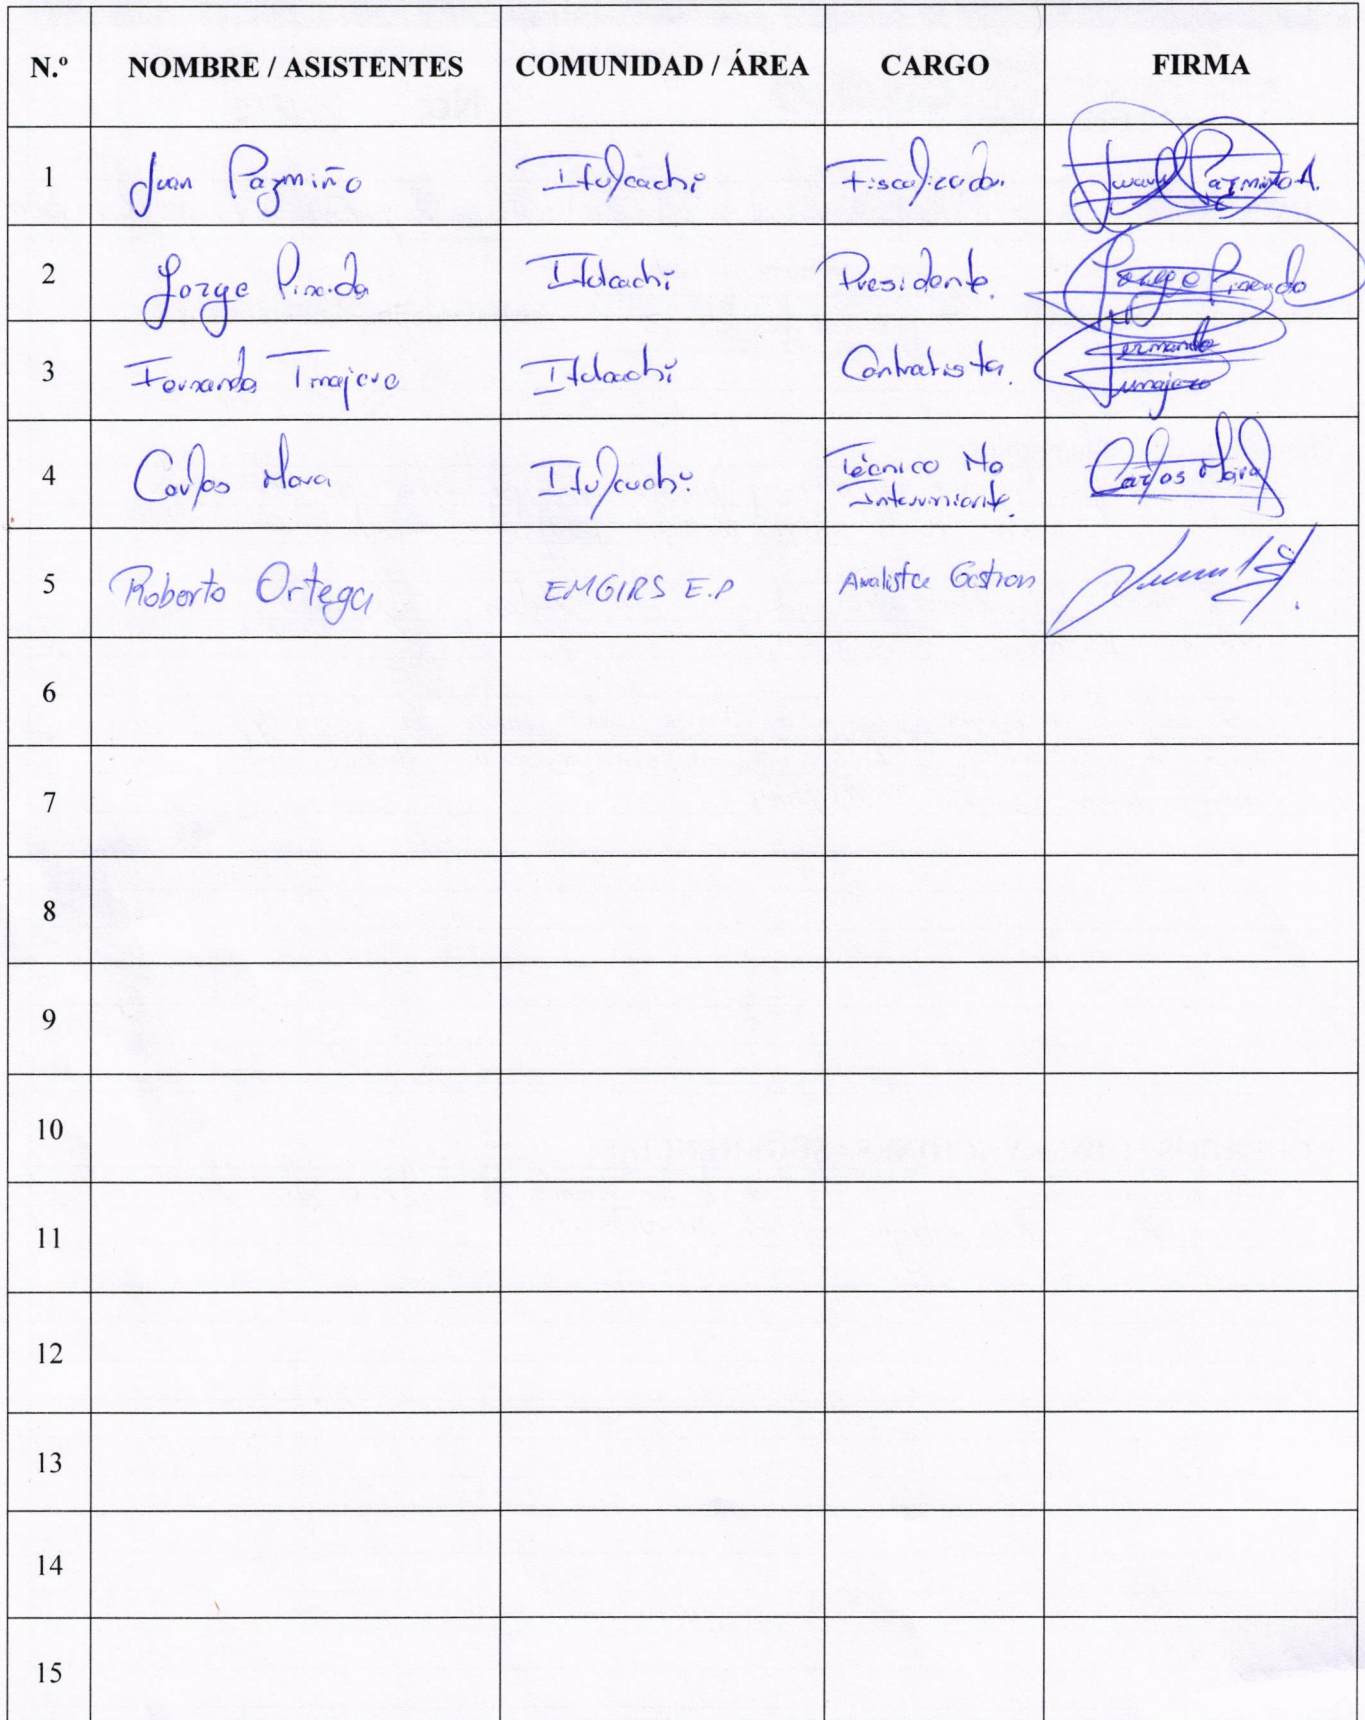 N.º NOMBRE / ASISTENTES COMUNIDAD / ÁREA CARGO FIRMA
1 Juan Pazmiño Itulcachi Fiscalizador. Juan Pazmiño A.
2 Jorge Pineda Itulcachi Presidente. Jorge Pineda
3 Fernando Tinajero Itulcachi Contratista. Fernando Tinajero
4 Carlos Mora Itulcachi. Técnico No Carlos Mora
Interviniente.
5 Roberto Ortega EMGIRS E.P Analista Gestion
6
7
8
9
10
11
12
13
14
15